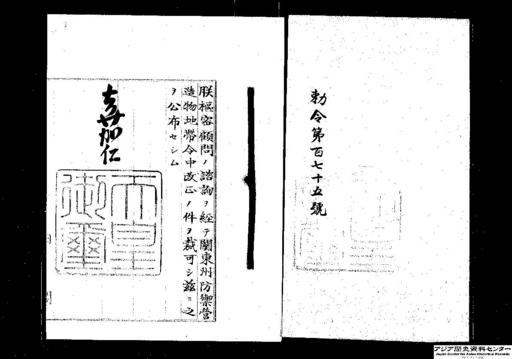 勅令第百七十五號
朕樞密顧問ノ諮詢ヲ經テ關東州防禦營
造物地帶令中改正ノ件ヲ裁可シ茲ニ之
ヲ公布セシム
嘉仁
天皇
御璽
アジア歴史資料センター
Japan Center for Asian Historical Records